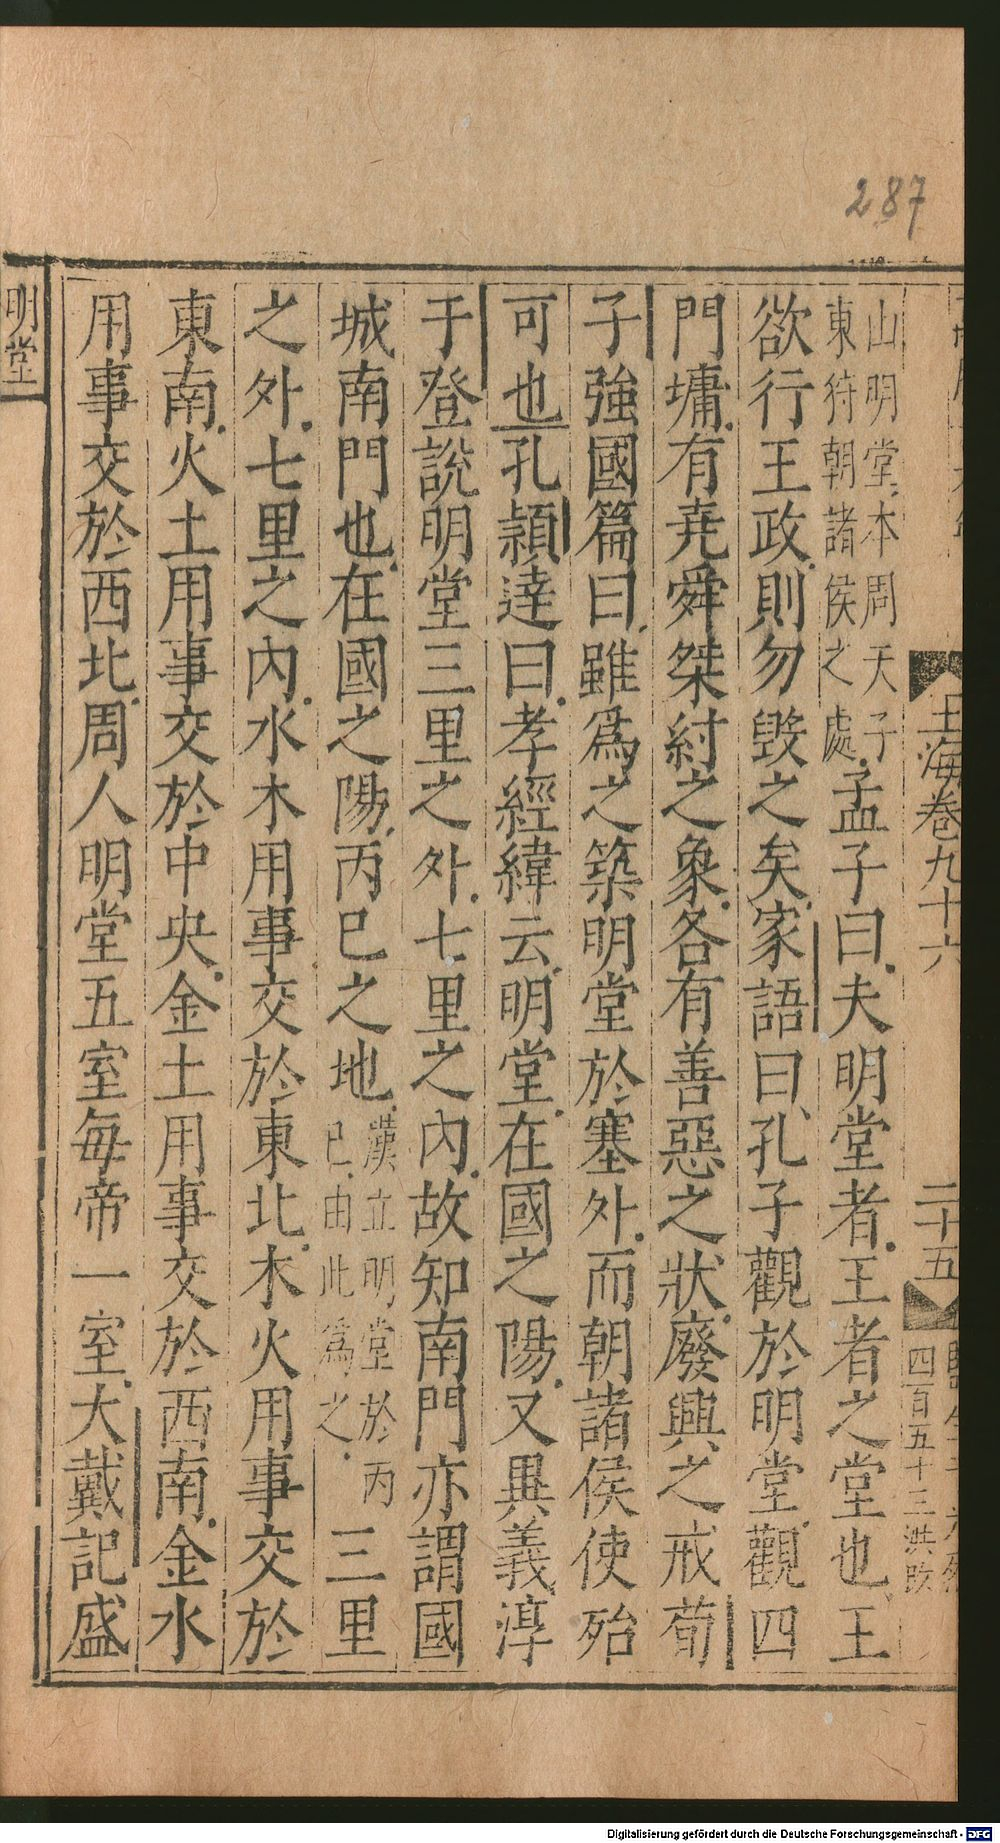 287
玉海卷九十六
二十五
四百五十三洪攺
山明堂本周天子
東狩朝諸侯之處
孟子曰夫明堂者王者之堂也王
欲行王政則勿毀之矣家語曰孔子觀於明堂觀四
門墉有堯舜桀紂之象各有善惡之狀廢興之戒荀
子強國篇曰雖爲之築明堂於塞外而朝諸侯使殆
可也孔頴達曰孝經緯云明堂在國之陽又異義淳
于登說明堂三里之外七里之內故知南門亦謂國
城南門也在國之陽丙巳之地
漢立明堂於丙
巳由此爲之
三里
之外七里之內水木用事交於東北木火用事交於
東南火土用事交於中央金土用事交於西南金水
用事交於西北周人明堂五室每帝一室大戴記盛
明堂
Digitalisierung gefördert durch die Deutsche Forschungsgemeinschaft - DFG